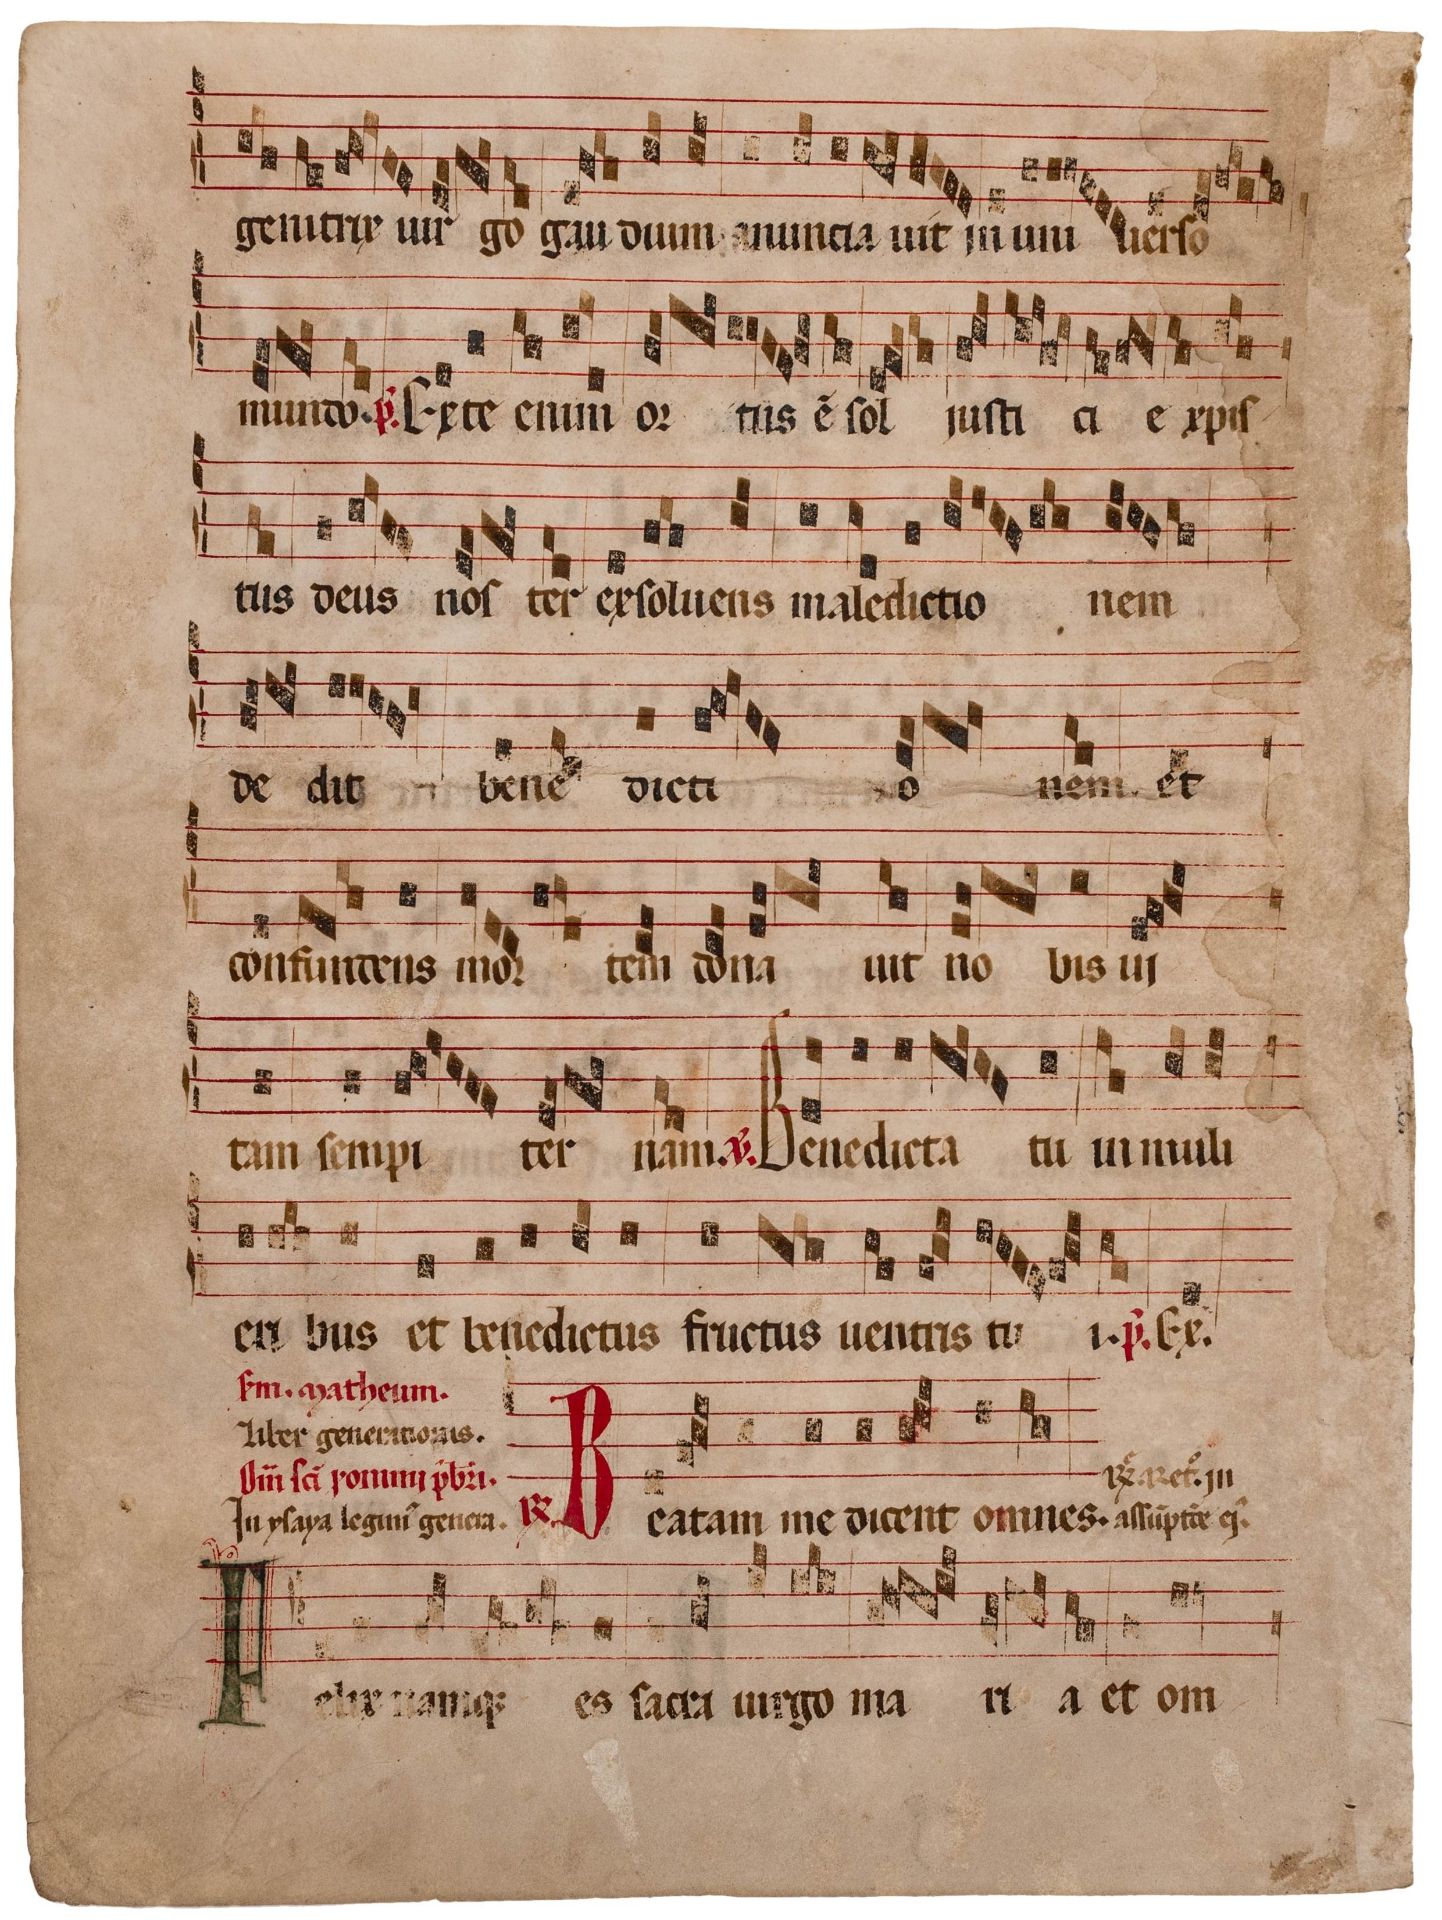 genitrix uir go gau dium anuncia uit in uni uerso
mundo. p̃. Exte enim or tus ē sol justi ci e xpis
tus deus nos ter exsoluens maledictio nem
de dit bene dicti o nem. et
confundens mor tem dona uit no bis ui
tam sempi ter nam. ꝟ. Benedicta tu in muli
eri bus et benedictus fructus uentris tu i. p̃. Ex.
Sm. Matheum.
Liber generationis.
Om̃ sc̃i ronimi p̃bri.
In ysaya legim̃ genera. ꝶ. Beatam me dicent omnes. ꝶ. Ret̃. in assũptiõe
Felix namqꝫ es sacra uirgo ma ri a et om